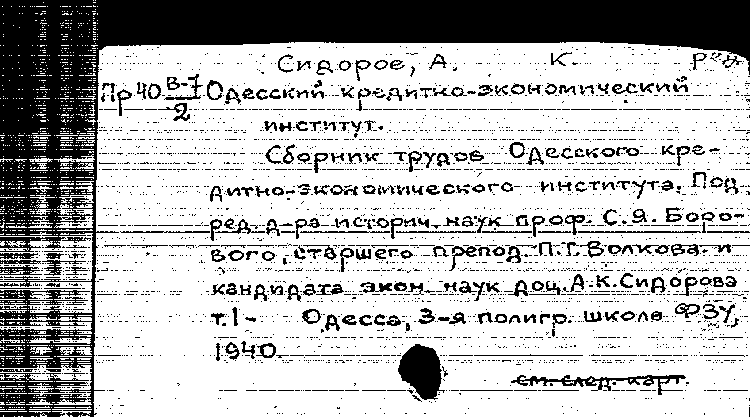 Сидоров, А. К. ред.
Пр40 В-7/2 Одесский кредитно-экономический
институт.
Сборник трудов Одесского кре-
дитно-экономического института. Под
ред. д-ра историч. наук проф. С.Я. Боро-
вого, старшего препод. П.Т. Волкова и
кандидата экон. наук доц. А.К. Сидорова
т. 1 - Одесса, 3-я полигр. школа ФЗУ,
1940.
см. след. карт.